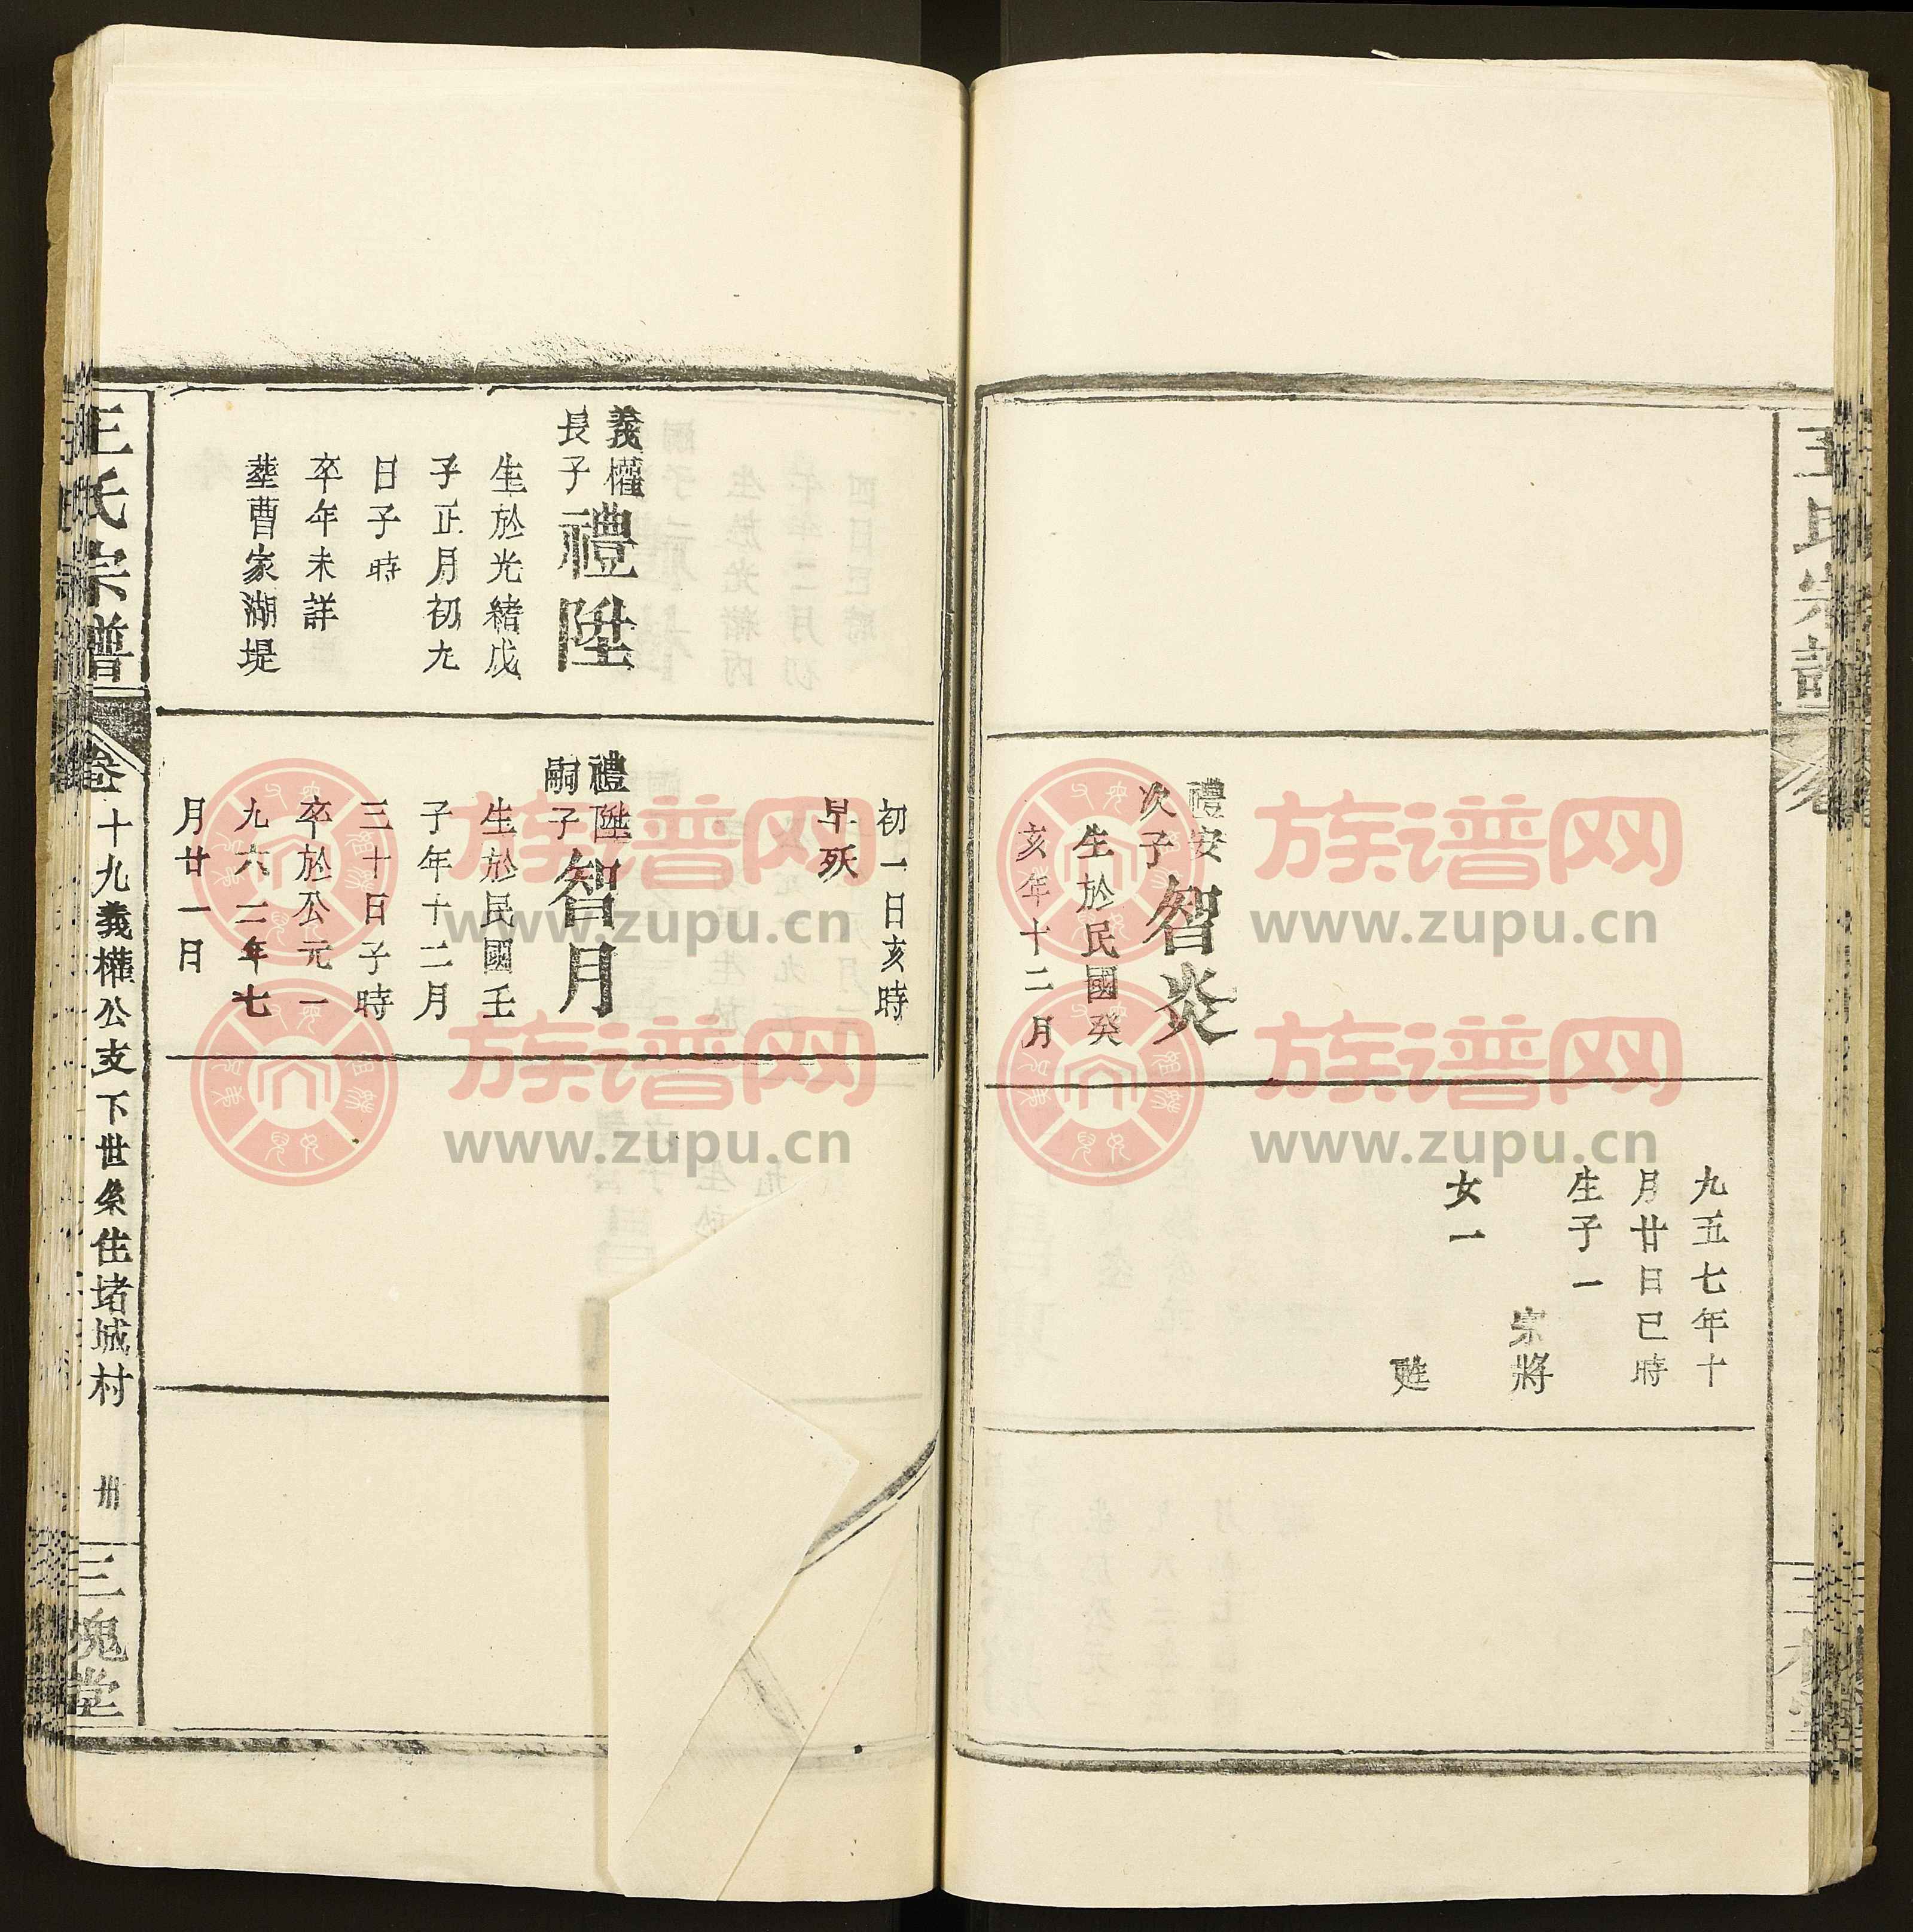 王氏宗譜
九五七年十
月廿日巳時
生子一
宗將
女一
甦
禮安
次子
智炎
生於民國癸
亥年十二月
初一日亥時
早殀
義權
長子
禮陞
生於光緒戊
子正月初九
日子時
卒年未詳
塟曹家湖堤
禮陞
嗣子
智月
生於民國壬
子年十二月
三十日子時
卒於公元一
九六二年七
月廿一日
王氏宗譜
卷十九義權公支下世系住堵城村
卅
三槐堂
族谱网
www.zupu.cn
族谱网
www.zupu.cn
族谱网
www.zupu.cn
族谱网
www.zupu.cn